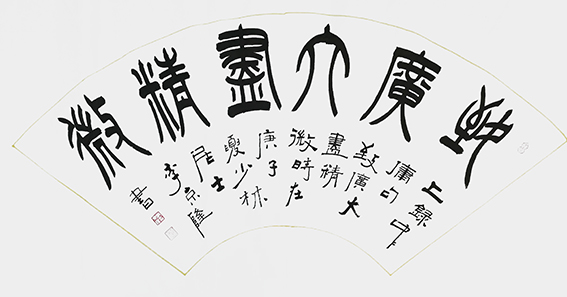 致廣大盡精微
上錄中
庸句
致廣大
盡精
微時在
庚子
夏少林
居士
李京隆
書